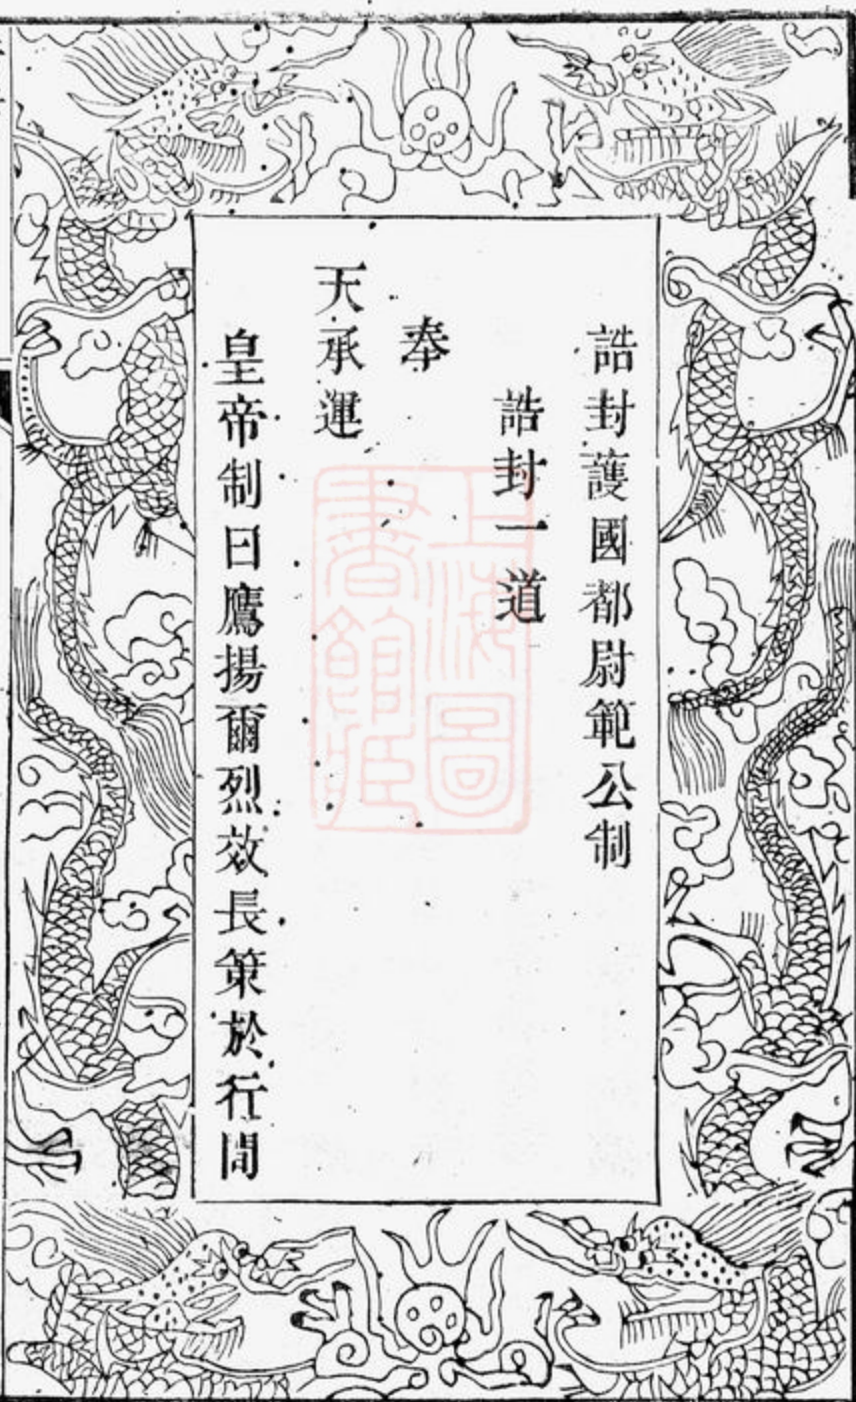 誥封護國都尉範公制
誥封一道
奉
天承運
皇帝制曰鷹揚爾烈效長策於行間
上海圖書館藏